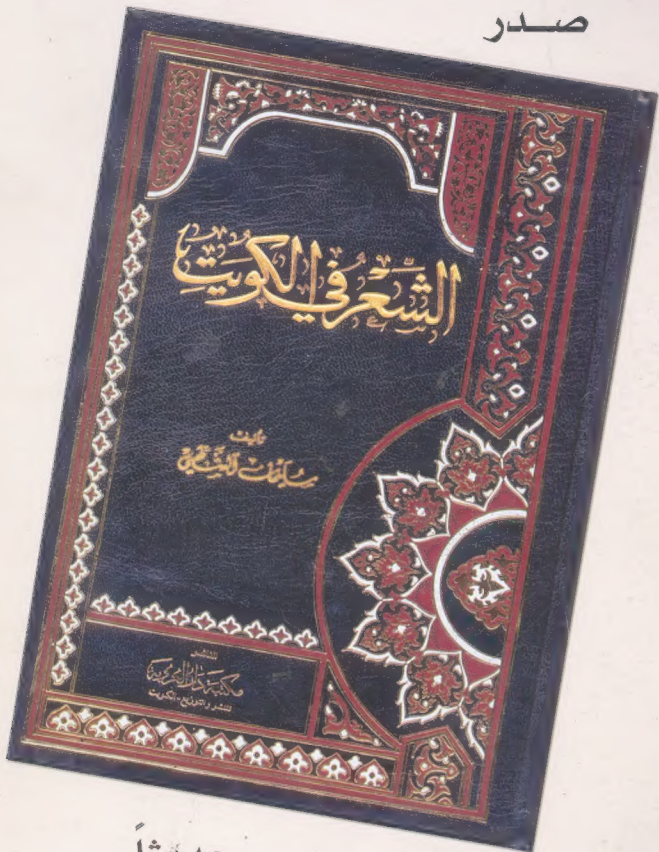 صدر
الشِّعْرُ في الكويتِ
تأليف
سليمان الشطي
الناشر
مكتبة دار العروبة
للنشر والتوزيع - الكويت
حديثاً